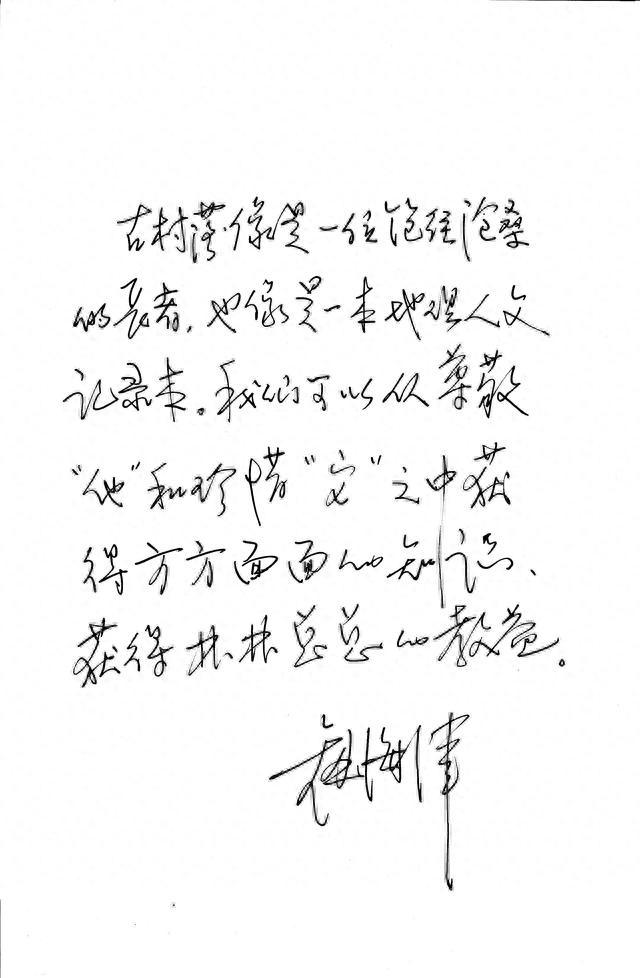 古村落像是一位饱经沧桑
的长者，也像是一本地理人文
记录本。我们可以从尊敬
“他”和珍惜“它”之中获
得方方面面的知识、
获得林林总总的教益。